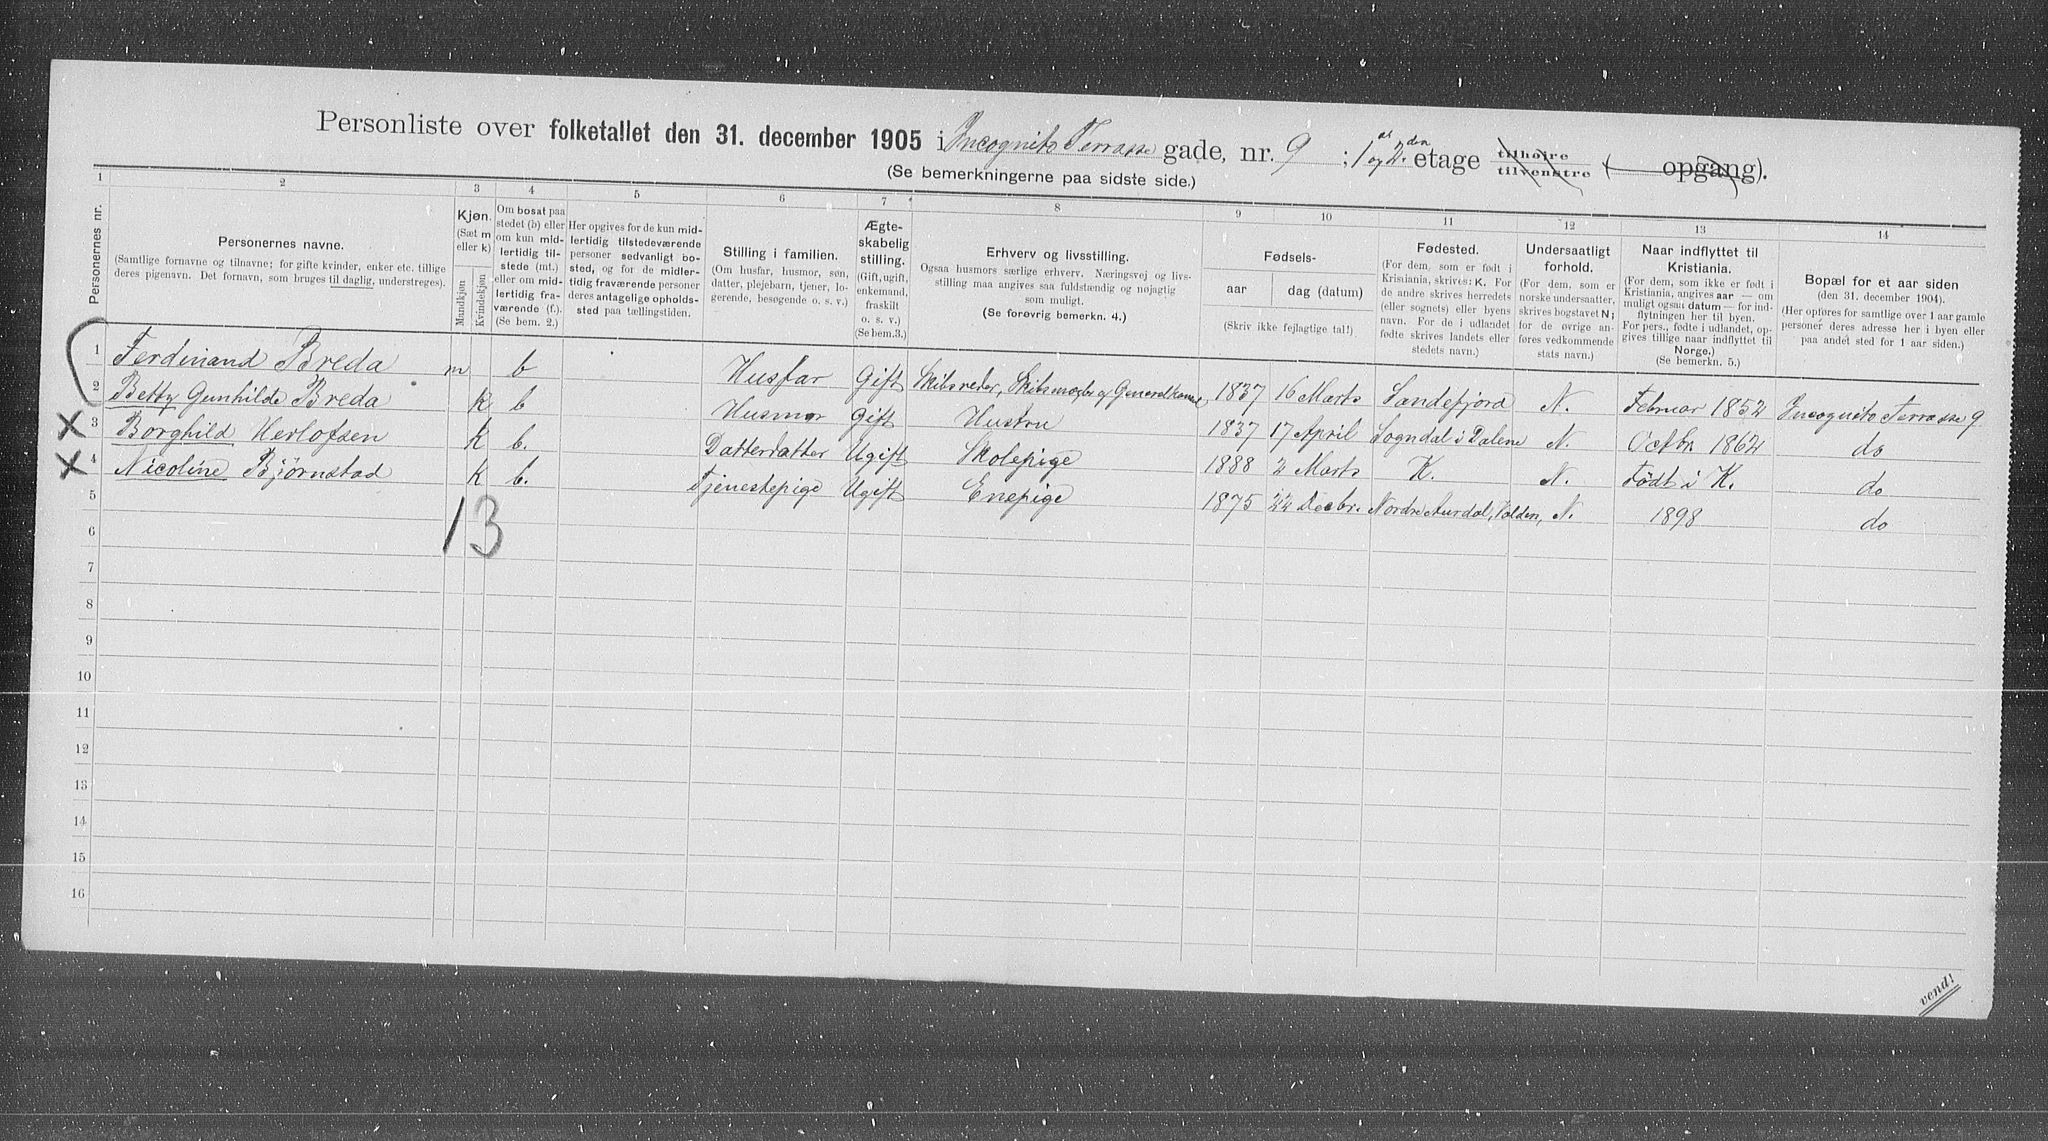 Personliste over folketallet den 31. december 1905 i Incognito Terrasse gade, nr. 9 ; 1 og 2. den etage tilhøire tilvenstre ( opgang).
(Se bemerkningerne paa sidste side.)
1 2 3 4 5 6 7 8 9 10 11 12 13 14
Personernes nr.
Personernes navne.
(Samtlige fornavne og tilnavne; for gifte kvinder, enker etc. tillige
deres pigenavn. Det fornavn, som bruges til daglig, understreges).
Kjøn.
(Sæt m
eller k)
Mandkjøn
Kvindekjøn
Om bosat paa
stedet (b) eller
om kun mid-
lertidig til-
stede (mt.)
eller om mid-
lertidig fra-
værende (f.).
(Se bem. 2.)
Her opgives for de kun mid-
lertidig tilstedeværende
personer sedvanligt bo-
sted, og for de midler-
tidig fraværende personer
deres antagelige opholds-
sted paa tællingstiden.
Stilling i familien.
(Om husfar, husmor, søn,
datter, plejebarn, tjener, lo-
gerende, besøgende o. s. v.)
Ægte-
skabelig
stilling.
(Gift, ugift,
enkemand,
fraskilt
o. s. v.)
(Se bem.3.)
Erhverv og livsstilling.
Ogsaa husmors særlige erhverv. Næringsvej og livs-
stilling maa angives saa fuldstændig og nøjagtig
som muligt.
(Se forøvrig bemerkn. 4.)
Fødsels-
aar
dag (datum)
(Skriv ikke fejlagtige tal!)
Fødested.
(For dem, som er født i
Kristiania, skrives: K. For
de andre skrives herredets
(eller sognets) eller byens
navn. For de i udlandet
fødte skrives landets eller
stedets navn.)
Undersaatligt
forhold.
(For dem, som er
norske undersaatter,
skrives bogstavet N;
for de øvrige an-
føres vedkommende
stats navn.)
Naar indflyttet til
Kristiania.
(For dem, som ikke er født i
Kristiania, angives aar — om
muligt ogsaa datum — for ind-
flytningen her til byen.
For pers., fødte i udlandet, op-
gives tillige naar indflyttet til
Norge.)
(Se bemerkn. 5.)
Bopæl for et aar siden
(den 31. december 1904).
(Her opføres for samtlige over 1 aar gamle
personer deres adresse her i byen eller
paa andet sted for 1 aar siden.)
1 Ferdinand Breda m b Husfar Gift Skibsreder, Skibsmægler og 1837 16 Marts Sandefjord N. Februar 1852 Incognito Terrasse 9
2 Betty Gunhilde Breda k b Husmor Gift Hustru 1837 17 April Sogndal i Dalene N. Octbr. 1864 do
3 Borghild Herlofsen k b. Datterdatter Ugift Skolepige 1888 2 Marts K. N. Født i K. do
4 Nicoline Bjørnstad k b. Tjenestepige Ugift Enepige 1875 22 Decbr. Nordre Aurdal, Valders, N. 1898 do
5
13
6
7
8
9
10
11
12
13
14
15
16
vend!